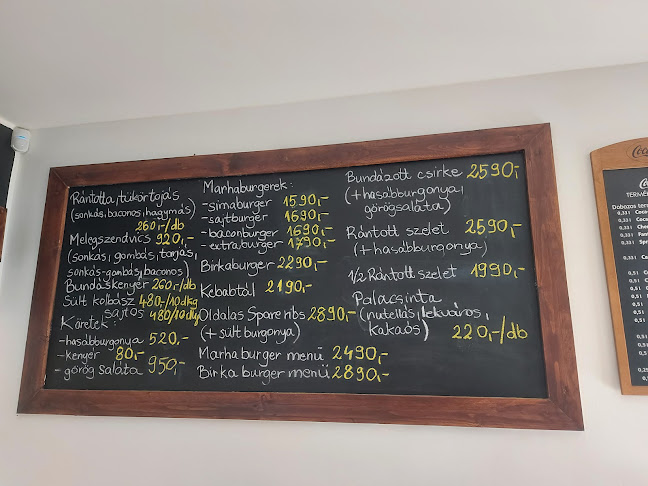 Rántotta, tükörtojás
(sonkás, baconos, hagymás)
260,-/db
Melegszendvics 920,-
(sonkás, gombás, tarjás,
sonkás-gombás, baconos)
Bundáskenyér 260,-/db
Sült kolbász 480,-/10dkg
sajtos 480/10dkg
Köretek:
-hasábburgonya 520,-
-kenyér 80,-
-görög saláta 950,-
Marhaburgerek:
-simaburger 1590,-
-sajtburger 1690,-
-baconburger 1690,-
-extraburger 1790,-
Birkaburger 2290,-
Kebabtál 2190,-
Oldalas Spare ribs 2890,-
(+ sült burgonya)
Marha burger menü 2490,-
Birka burger menü 2890,-
Bundázott csirke 2590,-
(+hasábburgonya,
görögsaláta)
Rántott szelet 2590,-
(+hasábburgonya)
1/2 Rántott szelet 1990,-
Palacsinta
(nutellás, lekváros,
kakaós) 220,-/db
Dobozos
0,33 l
0,33 l
0,33 l
0,33 l
0,33 l